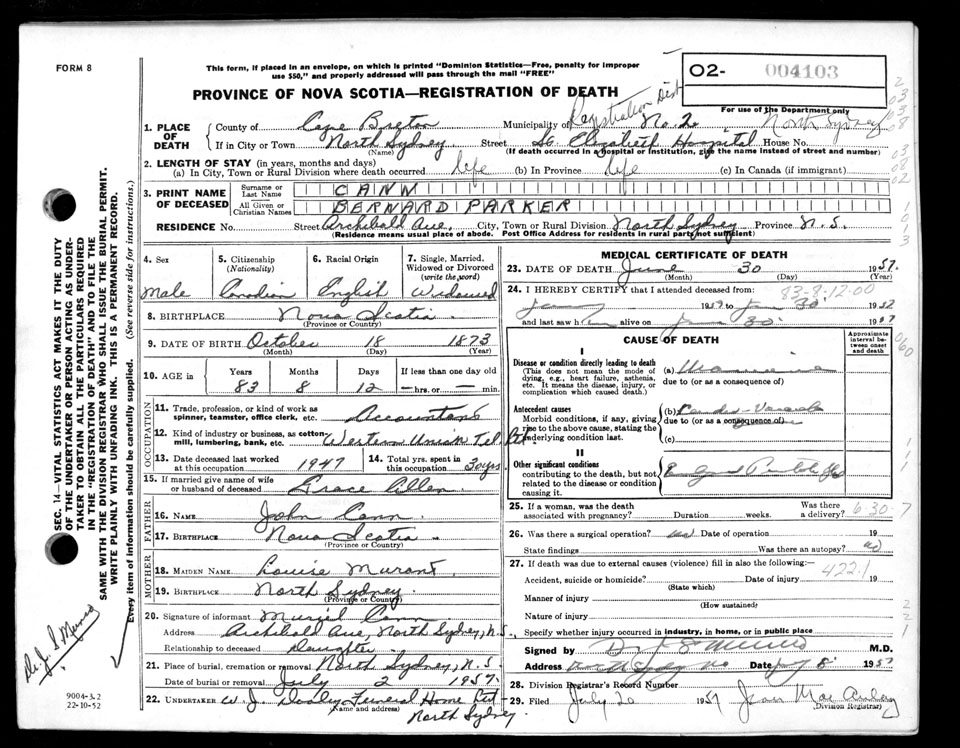 FORM 8
This form, if placed in an envelope, on which is printed "Dominion Statistics—Free, penalty for improper
use $50," and properly addressed will pass through the mail "FREE"
O2- 004103
PROVINCE OF NOVA SCOTIA—REGISTRATION OF DEATH
For use of the Department only
Registration Dist
1. PLACE OF DEATH
County of Cape Breton Municipality of No. 2 North Sydney
If in City or Town North Sydney Street St. Elizabeth Hospital House No.
(Name) (If death occurred in a hospital or institution, give the name instead of street and number)
2. LENGTH OF STAY (in years, months and days)
(a) In City, Town or Rural Division where death occurred life (b) In Province life (c) In Canada (if immigrant)
3. PRINT NAME OF DECEASED
Surname or Last Name CANN
All Given or Christian Names BERNARD PARKER
RESIDENCE No. Street Archibald Ave, City, Town or Rural Division North Sydney Province N.S.
(Residence means usual place of abode. Post Office Address for residents in rural parts not sufficient)
4. Sex Male
5. Citizenship (Nationality) Canadian
6. Racial Origin English
7. Single, Married, Widowed or Divorced (write the word) Widowed
8. BIRTHPLACE Nova Scotia
(Province or Country)
9. DATE OF BIRTH October 18 1873
(Month) (Day) (Year)
10. AGE in Years Months Days If less than one day
83 8 12 — hrs. or — min.
OCCUPATION
11. Trade, profession, or kind of work as spinner, teamster, office clerk, etc. Accountant
12. Kind of industry or business, as cotton-mill, lumbering, bank, etc. Western Union Tel
13. Date deceased last worked at this occupation 1947
14. Total yrs. spent in this occupation 30 yrs
15. If married give name of wife or husband of deceased Grace Allen
FATHER
16. NAME John Cann
17. BIRTHPLACE Nova Scotia
(Province or Country)
MOTHER
18. MAIDEN NAME Louise Murant
19. BIRTHPLACE North Sydney
(Province or Country)
20. Signature of informant Muriel Cann
Address Archibald Ave, North Sydney, N.S.
Relationship to deceased Daughter
21. Place of burial, cremation or removal North Sydney, N.S.
Date of burial or removal July 2 1957.
22. UNDERTAKER W. J. Dooley Funeral Home Ltd
(Name and address) North Sydney
MEDICAL CERTIFICATE OF DEATH
23. DATE OF DEATH June 30 1957.
(Month) (Day) (Year)
83-8-12-00
24. I HEREBY CERTIFY that I attended deceased from:
19 to June 30 19
and last saw h alive on June 30 1957
CAUSE OF DEATH
Approximate interval between onset and death
I
Disease or condition directly leading to death
(This does not mean the mode of dying, e.g., heart failure, asthenia, etc. It means the disease, injury, or complication which caused death.)
(a)
due to (or as a consequence of)
Antecedent causes
Morbid conditions, if any, giving rise to the above cause, stating the underlying condition last.
(b)
due to (or as a consequence of)
(c)
II
Other significant conditions
contributing to the death, but not related to the disease or condition causing it.
25. If a woman, was the death associated with pregnancy? Duration weeks. Was there a delivery? 6-30-7
26. Was there a surgical operation? no Date of operation 19
State findings Was there an autopsy? no
27. If death was due to external causes (violence) fill in also the following:— 422.1
Accident, suicide or homicide? Date of injury 19
(State which)
Manner of injury
(How sustained)
Nature of injury
Specify whether injury occurred in industry, in home, or in public place
Signed by M.D.
Address Date July 8 1957
28. Division Registrar's Record Number
29. Filed July 20 1957 Jean MacAulay
(Division Registrar)
SEC. 14—VITAL STATISTICS ACT MAKES IT THE DUTY
OF THE UNDERTAKER OR PERSON ACTING AS UNDER-
TAKER TO OBTAIN ALL THE PARTICULARS REQUIRED
IN THE "REGISTRATION OF DEATH" AND TO FILE THE
SAME WITH THE DIVISION REGISTRAR WHO SHALL ISSUE THE BURIAL PERMIT.
WRITE PLAINLY WITH UNFADING INK. THIS IS A PERMANENT RECORD.
Every item of information should be carefully supplied. (See reverse side for instructions.)
9004-5.2
22-10-52